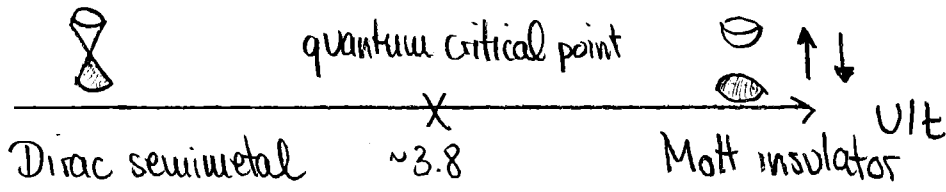 quantum critical point
U/t
Dirac semimetal ~3.8 Mott insulator